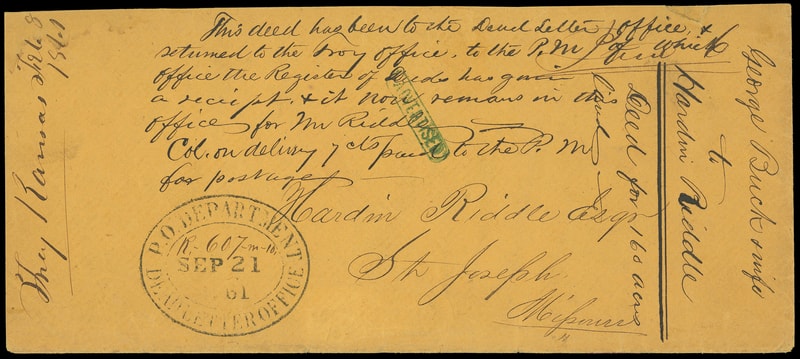 This deed has been to the Dead Letter office, &
returned to the Troy office, to the P.M. of which
office the Register of Deeds has given
a receipt, & it now remains in this
office for Mr Riddle
Col. on delivery 7 cts paid to the P. M
for postage
Hardin Riddle Esqr
St Joseph
Missouri
ADVERTISED
P.O. DEPARTMENT
R-607-m-
SEP 21
61
DEAD LETTER OFFICE
Troy Kansas
1861
George Buck & wife
to
Hardin Riddle
Deed for 160 acres